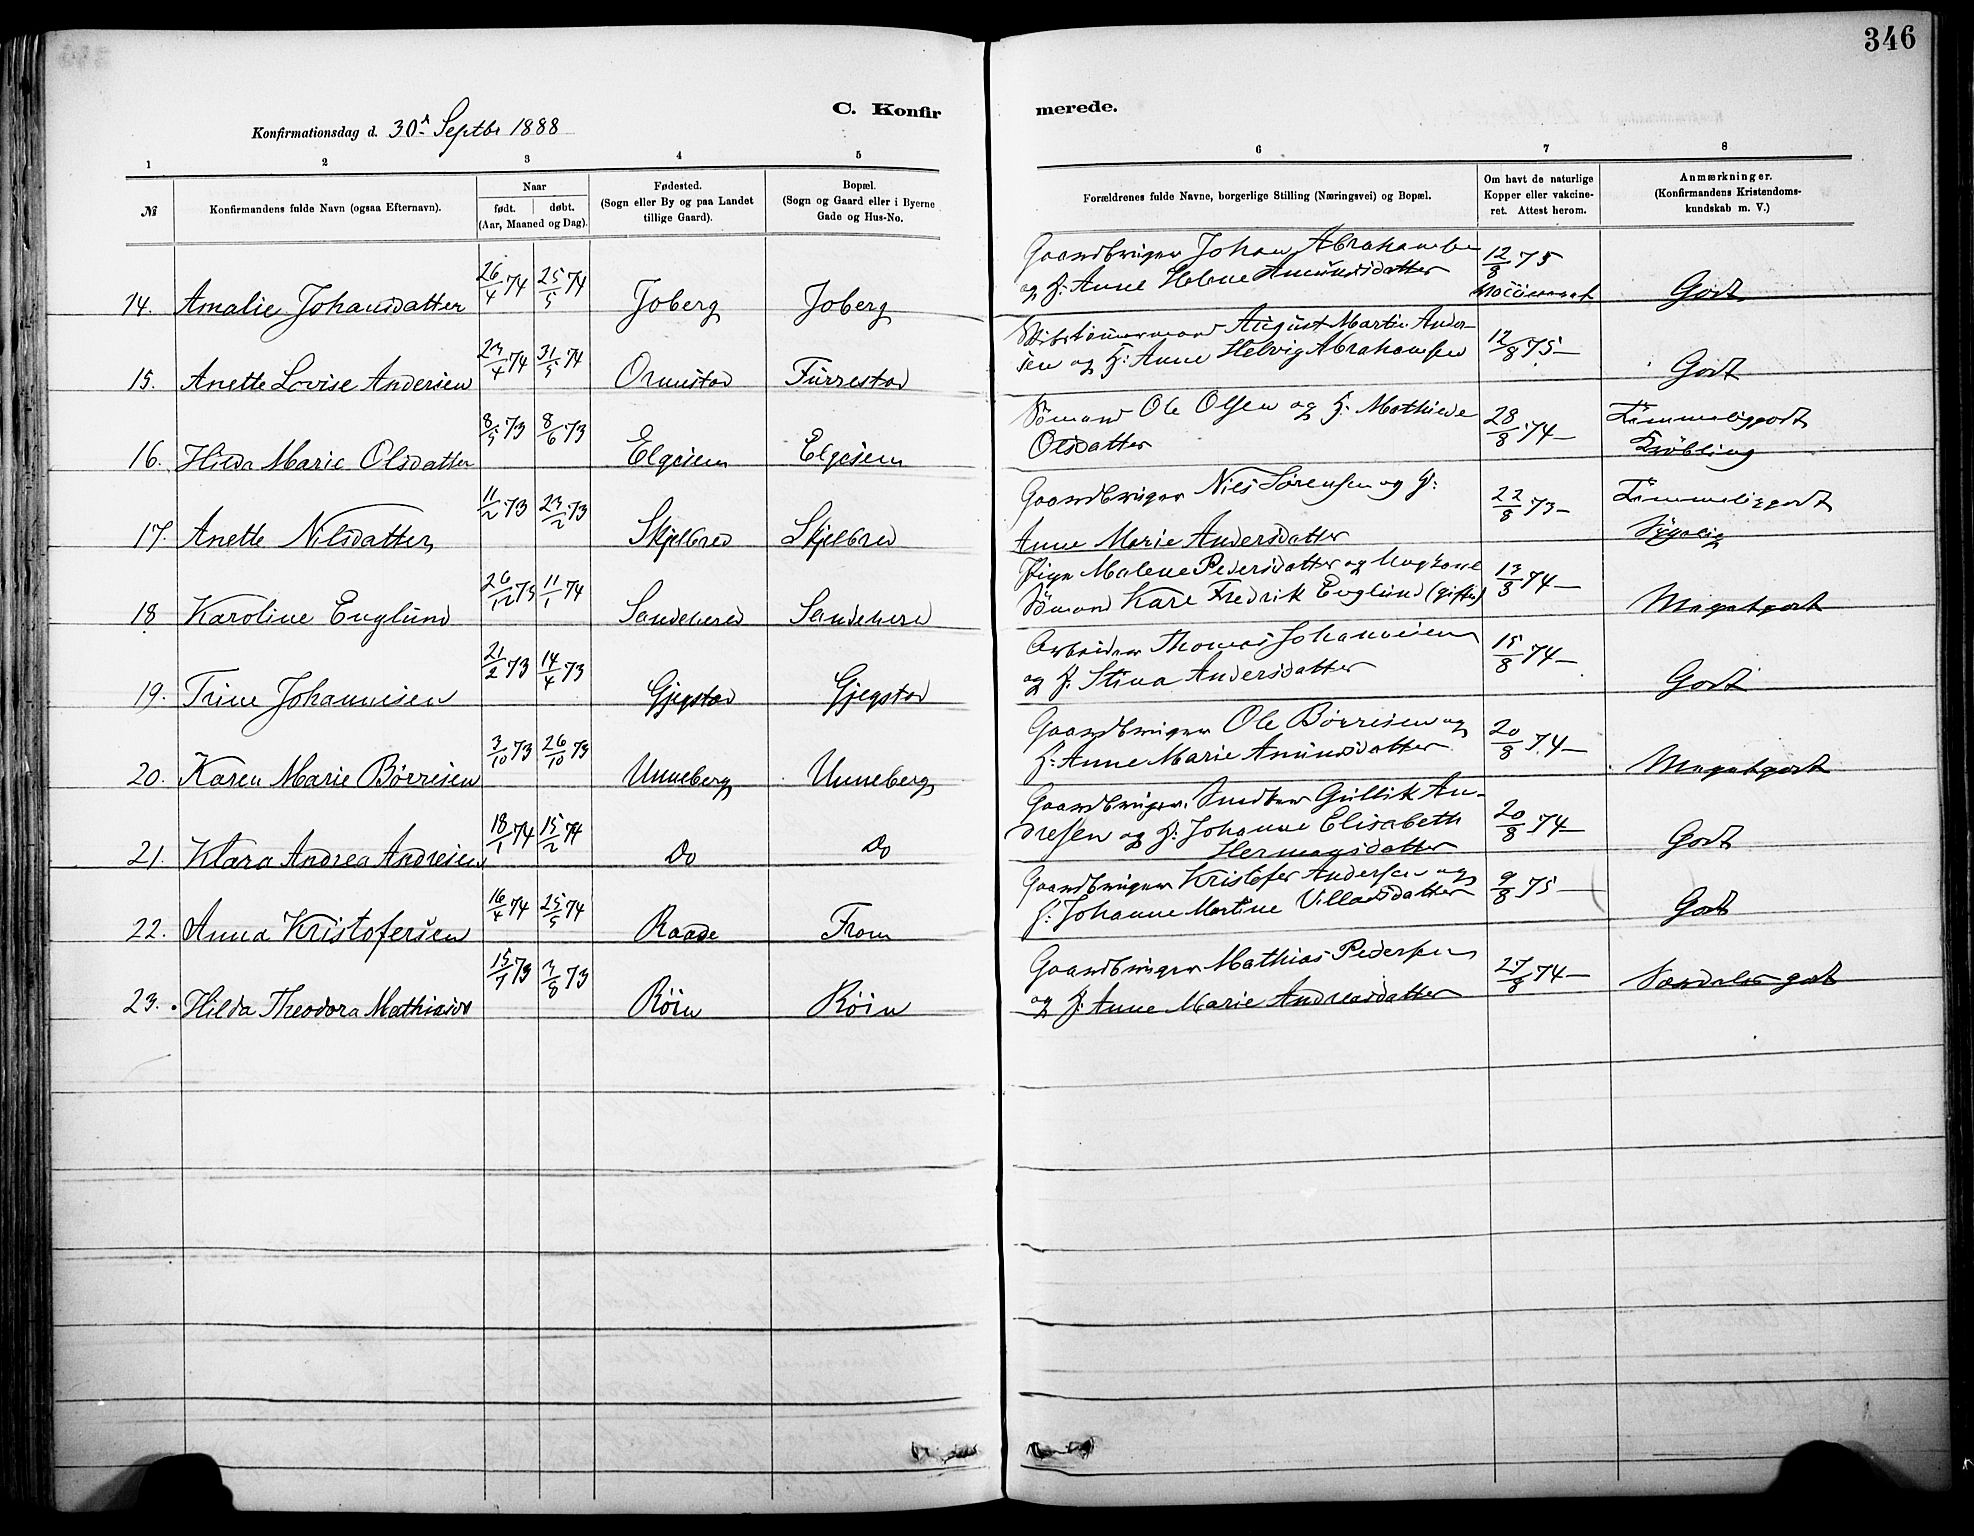 346
C. Konfirmerede.
Konfirmationsdag d. 30d Septbr 1888
1 2 3 4 5 6 7 8
№
Konfirmandens fulde Navn (ogsaa Efternavn).
Naar
født. døbt.
(Aar, Maaned og Dag).
Fødested.
(Sogn eller By og paa Landet
tillige Gaard).
Bopæl.
(Sogn og Gaard eller i Byerne
Gade og Hus-No.
Forældrenes fulde Navne, borgerlige Stilling (Næringsvei) og Bopæl.
Om havt de naturlige
Kopper eller vakcine-
ret. Attest herom.
Anmærkninger.
(Konfirmandens Kristendoms-
kundskab m. V.)
14. Amalie Johansdatter 26/4 74 25/5 74 Joberg Joberg
Gaardbruger Johan Abrahamsen
og H: Anne Helene Amundsdatter
12/8 75
Vaccineret
Godt
15. Anette Lovise Andersen 23/4 74 31/5 74 Ormestad Furrestad
Skibstømmermand August Martin Ander-
sen og H: Anne Helvig Abrahamsen
12/8 75 —
Godt
16. Hilda Marie Olsdatter 8/5 73 8/6 73 Elgesem Elgesem
Sømand Ole Olsen og H: Mathilde
Olsdatter
28/8 74 —
Temmeliggodt
Krøbling
17. Anette Nilsdatter 11/2 73 23/2 73 Skjelbred Skjelbred
Gaardbruger Nils Sørensen og H:
Anne Marie Andersdatter
22/8 73 —
Temmeliggodt
Sygelig
18 Karoline Englund 26/12 73 11/1 74 Sandeherred Sandeherred
Pige Malene Pedersdatter og Ungkarl
Sømand Karl Fredrik Englund (gifte)
13/8 74 —
Megetgodt
19. Trine Johannesen 21/2 73 14/4 73 Gjegstad Gjegstad
Arbeider Thomas Johannesen
og H: Stina Andersdatter
15/8 74 —
Godt
20. Karen Marie Børresen 3/10 73 26/10 73 Unneberg Unneberg
Gaardbruger Ole Børresen og
H: Anne Marie Amundsdatter
20/8 74 —
Megetgodt
21. Klara Andrea Andresen 18/1 74 15/2 74 Do Do
Gaardbruger Snedker Gullik An-
dresen og H: Johanne Elisabeth
Hermansdatter
20/8 74 —
Godt
22. Anna Kristofersen 16/4 74 25/5 74 Raade From
Gaardbruger Kristofer Andersen og
H: Johanne Martine Villadsdatter
9/8 75 —
Godt
23. Hilda Theodora Mathiasd 15/7 73 3/8 73 Røin Røin
Gaardbruger Mathias Pedersen
og H: Anne Marie Andreasdatter
27/8 74 —
Særdeles godt